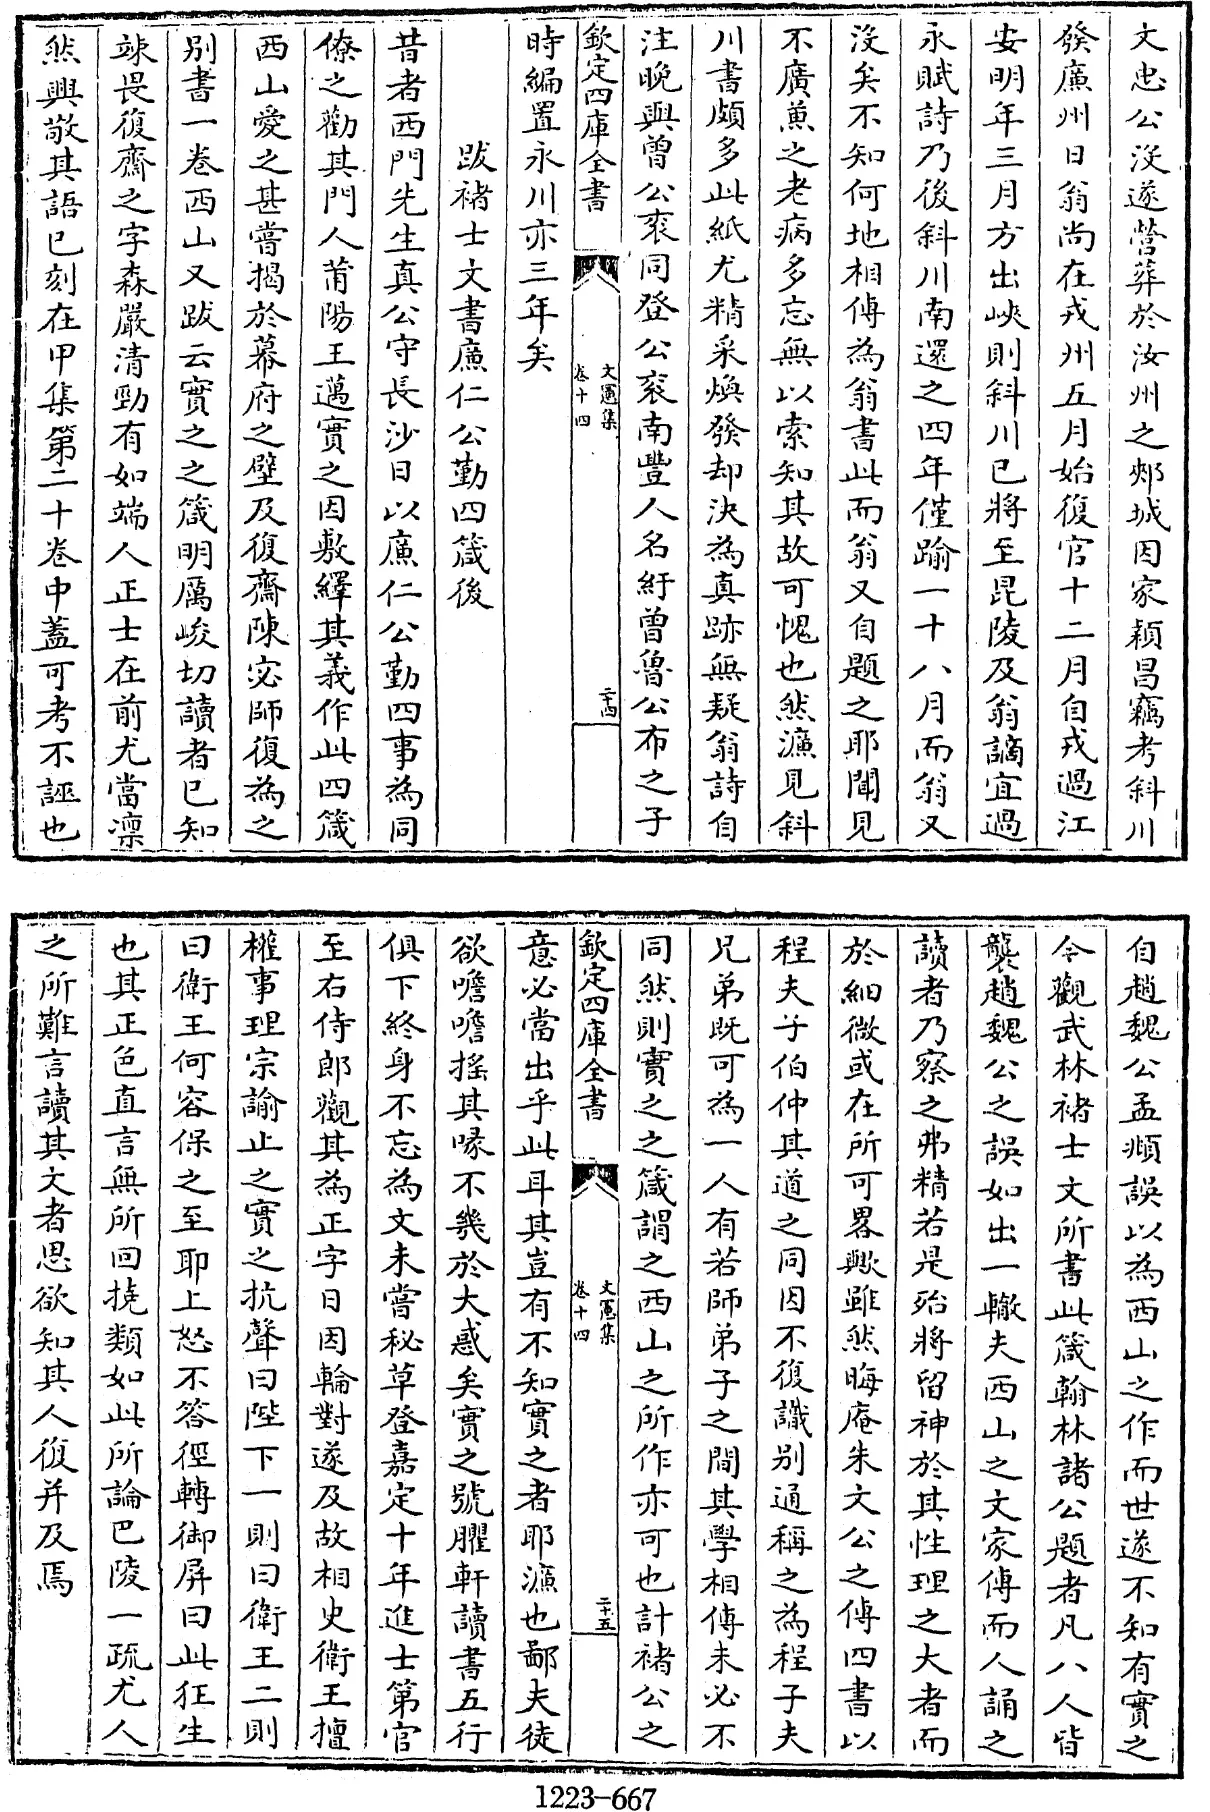 文忠公沒遂營葬於汝州之郟城因家潁昌竊考斜川
發廉州日翁尚在戎州五月始復官十二月自戎過江
安明年三月方出峽則斜川已將至昆陵及翁謫宜過
永賦詩乃後斜川南還之四年僅踰一十八月而翁又
沒矣不知何地相傳為翁書此而翁又自題之耶聞見
不廣兼之老病多忘無以索知其故可愧也然濂見斜
川書頗多此紙尤精采煥發却決為真跡無疑翁詩自
注晚與曾公衮同登公衮南豐人名紆曾魯公布之子
欽定四庫全書
文憲集
卷十四
二十四
時編置永川亦三年矣
跋褚士文書廉仁公勤四箴後
昔者西門先生真公守長沙日以廉仁公勤四事為同
僚之勸其門人莆陽王邁實之因敷繹其義作此四箴
西山愛之甚嘗揭於幕府之壁及復齋陳宓師復為之
別書一卷西山又跋云實之之箴明厲峻切讀者已知
竦畏復齋之字森嚴清勁有如端人正士在前尤當凛
然興敬其語已刻在甲集第二十卷中蓋可考不誣也
自趙魏公孟頫誤以為西山之作而世遂不知有實之
今觀武林褚士文所書此箴翰林諸公題者凡八人皆
襲趙魏公之誤如出一轍夫西山之文家傳而人誦之
讀者乃察之弗精若是殆將留神於其性理之大者而
於細微或在所可畧歟雖然晦庵朱文公之傳四書以
程夫子伯仲其道之同因不復識別通稱之為程子夫
兄弟既可為一人有若師弟子之間其學相傳未必不
同然則實之之箴謂之西山之所作亦可也計褚公之
欽定四庫全書
文憲集
卷十四
二十五
意必當出乎此耳其豈有不知實之者耶濂也鄙夫徒
欲噡噡搖其喙不幾於大惑矣實之號臞軒讀書五行
俱下終身不忘為文未嘗秘草登嘉定十年進士第官
至右侍郎觀其為正字日因輪對遂及故相史衛王擅
權事理宗諭止之實之抗聲曰陛下一則曰衛王二則
曰衛王何容保之至耶上怒不答徑轉御屏曰此狂生
也其正色直言無所回撓類如此所論巴陵一疏尤人
之所難言讀其文者思欲知其人復并及焉
1223-667